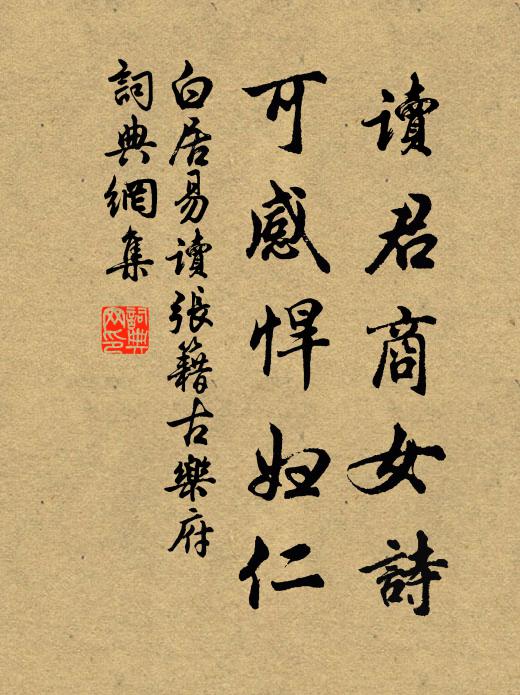 讀君商女詩
可感悍妇仁
白居易讀張籍古樂府
詞典網集
詞典网印